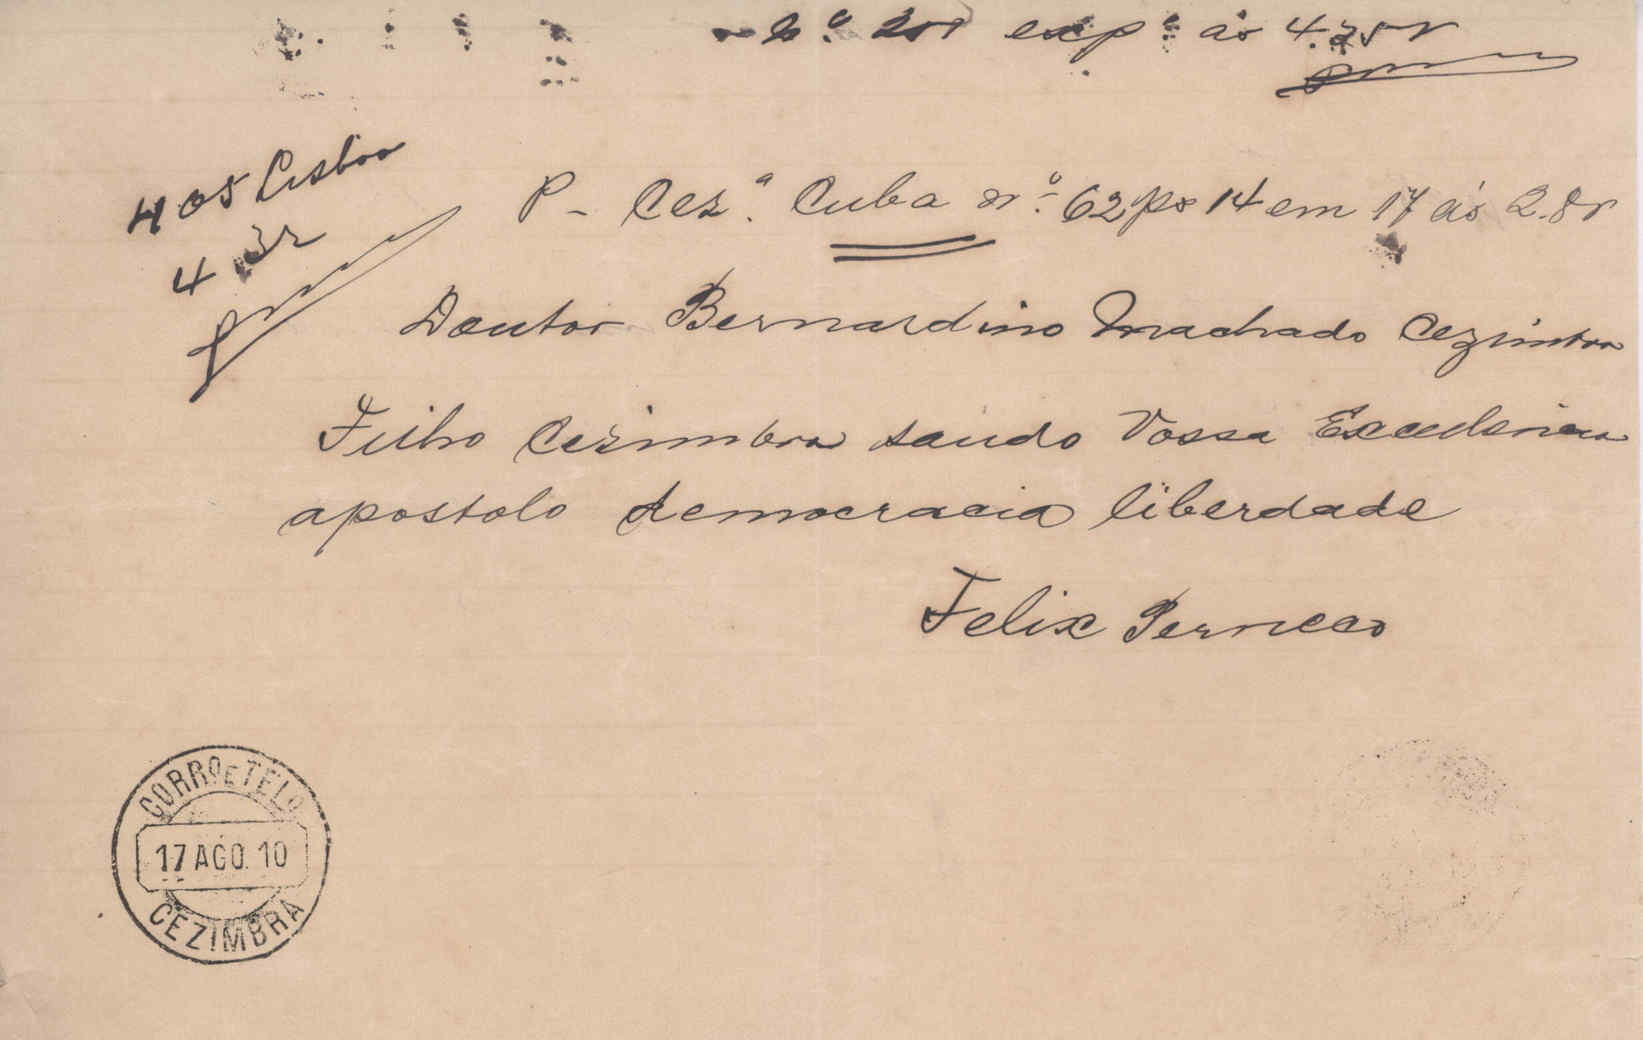 exp.º ás 4.35 r
405 Lisboa
4.32
P - Cez.ª Cuba nº 62 ps 14 em 17 ás 2.8 r
Doutor Bernardino Machado Cezimbra
Filho Cezimbra saudo Vossa Excelencia
apostolo democracia liberdade
Felix
CORRO E TELO
17 AGO. 10
CEZIMBRA